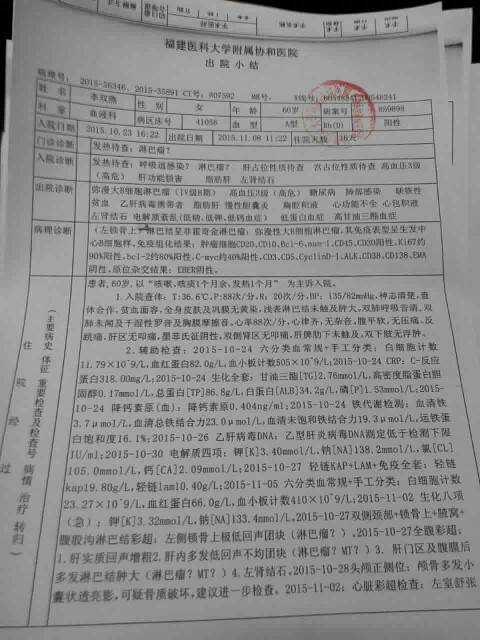 福建医科大学附属协和医院
出 院 小 结
病理号: 2015-56346、2015-35891 CT号: R07592 MR号: X线号:
姓 名 李双燕 性 别 女 年 龄 60岁 病案号 859898
科 室 血液科 病区床号 41056 血 型 A型 Rh(D) 阳性
入院日期 2015.10.23 16:22 出院日期 2015.11.08 11:22 住院天数 16天
门诊诊断 发热待查:淋巴瘤?
入院诊断 发热待查:呼吸道感染? 淋巴瘤? 肝占位性质待查 宫占位性质待查 高血压3级
(高危) 肝功能损害 脂肪肝 左肾结石
出院诊断 弥漫大B细胞淋巴瘤(IV级B期) 高血压3级(高危) 糖尿病 肺部感染 缺铁性
贫血 乙肝病毒携带者 脂肪肝 慢性胆囊炎 胸腔积液 心功能不全 心包积液
左肾结石 电解质紊乱(低钠,低钾,低钙血症) 低蛋白血症 高甘油三酯血症
病理诊断 (左锁骨上)淋巴结呈非霍奇金淋巴瘤: 弥漫性大B细胞淋巴瘤,其免疫表型呈生发中
心B细胞样,免疫组化结果: 肿瘤细胞CD20,CD10,Bcl-6,mum-1,CD45,CD30阳性,Ki67约
90%阳性,bcl-2约80%阳性,C-myc约40%阳性,CD3,CD5,CyclinD-1,ALK,CD38,CD138,EMA
阴性,原位杂交结果: EBER阴性。
(主要病史 体征 重要检查及检查号 病情 治疗 转归)
住 院 经 过
患者,60岁,以“咳嗽,咳痰1个月余,发热1个月”为主诉入院。
1.入院查体: T:36.6℃,P:88次/分,R: 20次/分,BP: 135/82mmHg,神志清楚,查
体合作,贫血面容,全身皮肤及巩膜无黄染,浅表淋巴结未触及肿大,双肺呼吸音清,双
肺未闻及干湿性罗音及胸膜摩擦音,心率88次/分,心律齐,无杂音,腹平软,无压痛,反
跳痛,肝区无叩痛,墨菲氏征阴性,双侧肾区无叩痛,肝脾肋下未触及,双下肢无浮肿。
2.辅助检查: 2015-10-24 六分类血常规+手工分类: 白细胞计数
11.79×10^9/L,血红蛋白82.0g/L,血小板计数505×10^9/L;2015-10-24 CRP: C-反应
蛋白318.00mg/L;2015-10-24 生化全套: 甘油三酯[TG]2.76mmol/L,高密度脂蛋白胆
固醇0.17mmol/L,总蛋白[TP]86.8g/L,白蛋白[ALB]34.2g/L,磷[P]1.53mmol/L;2015-
10-24 降钙素原(血): 降钙素原0.404ng/ml;2015-10-24 铁代谢检测: 血清铁
3.7μmol/L,血清总铁结合力23.0μmol/L,血清未饱和铁结合力19.3μmol/L,运铁蛋
白饱和度16.1%;2015-10-26 乙肝病毒DNA: 乙型肝炎病毒DNA测定低于检测下限
IU/ml;2015-10-30 电解质四项: 钾[K]3.40mmol/L,钠[NA]138.2mmol/L,氯[CL]
105.0mmol/L,钙[CA]2.09mmol/L;2015-10-27 轻链KAP+LAM+免疫全套: 轻链
kap19.80g/L,轻链lam10.40g/L;2015-11-05 六分类血常规+手工分类: 白细胞计数
23.27×10^9/L,血红蛋白66.0g/L,血小板计数410×10^9/L;2015-11-02 生化八项
(急): 钾[K]3.32mmol/L,钠[NA]133.4mmol/L,2015-10-27双侧颈部+锁骨上+腋窝+
腹股沟淋巴结彩超: 左侧锁骨上极低回声团块(淋巴瘤?)。2015-10-27全腹彩超:
1.肝实质回声增粗2.肝内多发低回声不均团块(淋巴瘤?MT?)3. 肝门区及腹膜后
多发淋巴结肿大(淋巴瘤?MT?)4.左肾结石,2015-10-28头颅正侧位: 颅骨多发小
囊状透亮影,可疑骨质破坏,建议进一步检查。2015-11-02: 心脏彩超检查: 左室舒张